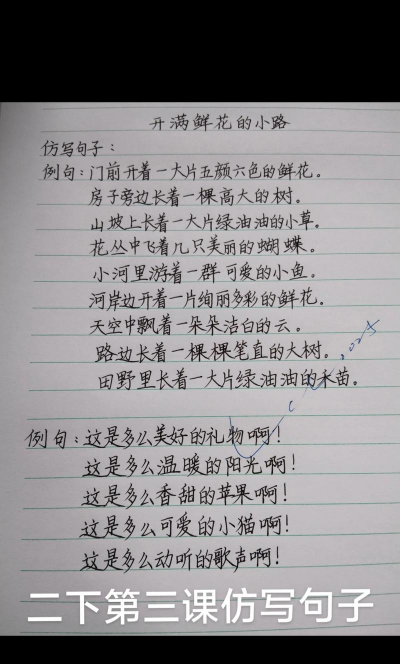 开满鲜花的小路
仿写句子：
例句：门前开着一大片五颜六色的鲜花。
房子旁边长着一棵高大的树。
山坡上长着一大片绿油油的小草。
花丛中飞着几只美丽的蝴蝶。
小河里游着一群可爱的小鱼。
河岸边开着一片绚丽多彩的鲜花。
天空中飘着一朵朵洁白的云。
路边长着一棵棵笔直的大树。
田野里长着一大片绿油油的禾苗。
例句：这是多么美好的礼物啊！
这是多么温暖的阳光啊！
这是多么香甜的苹果啊！
这是多么可爱的小猫啊！
这是多么动听的歌声啊！
二下第三课仿写句子